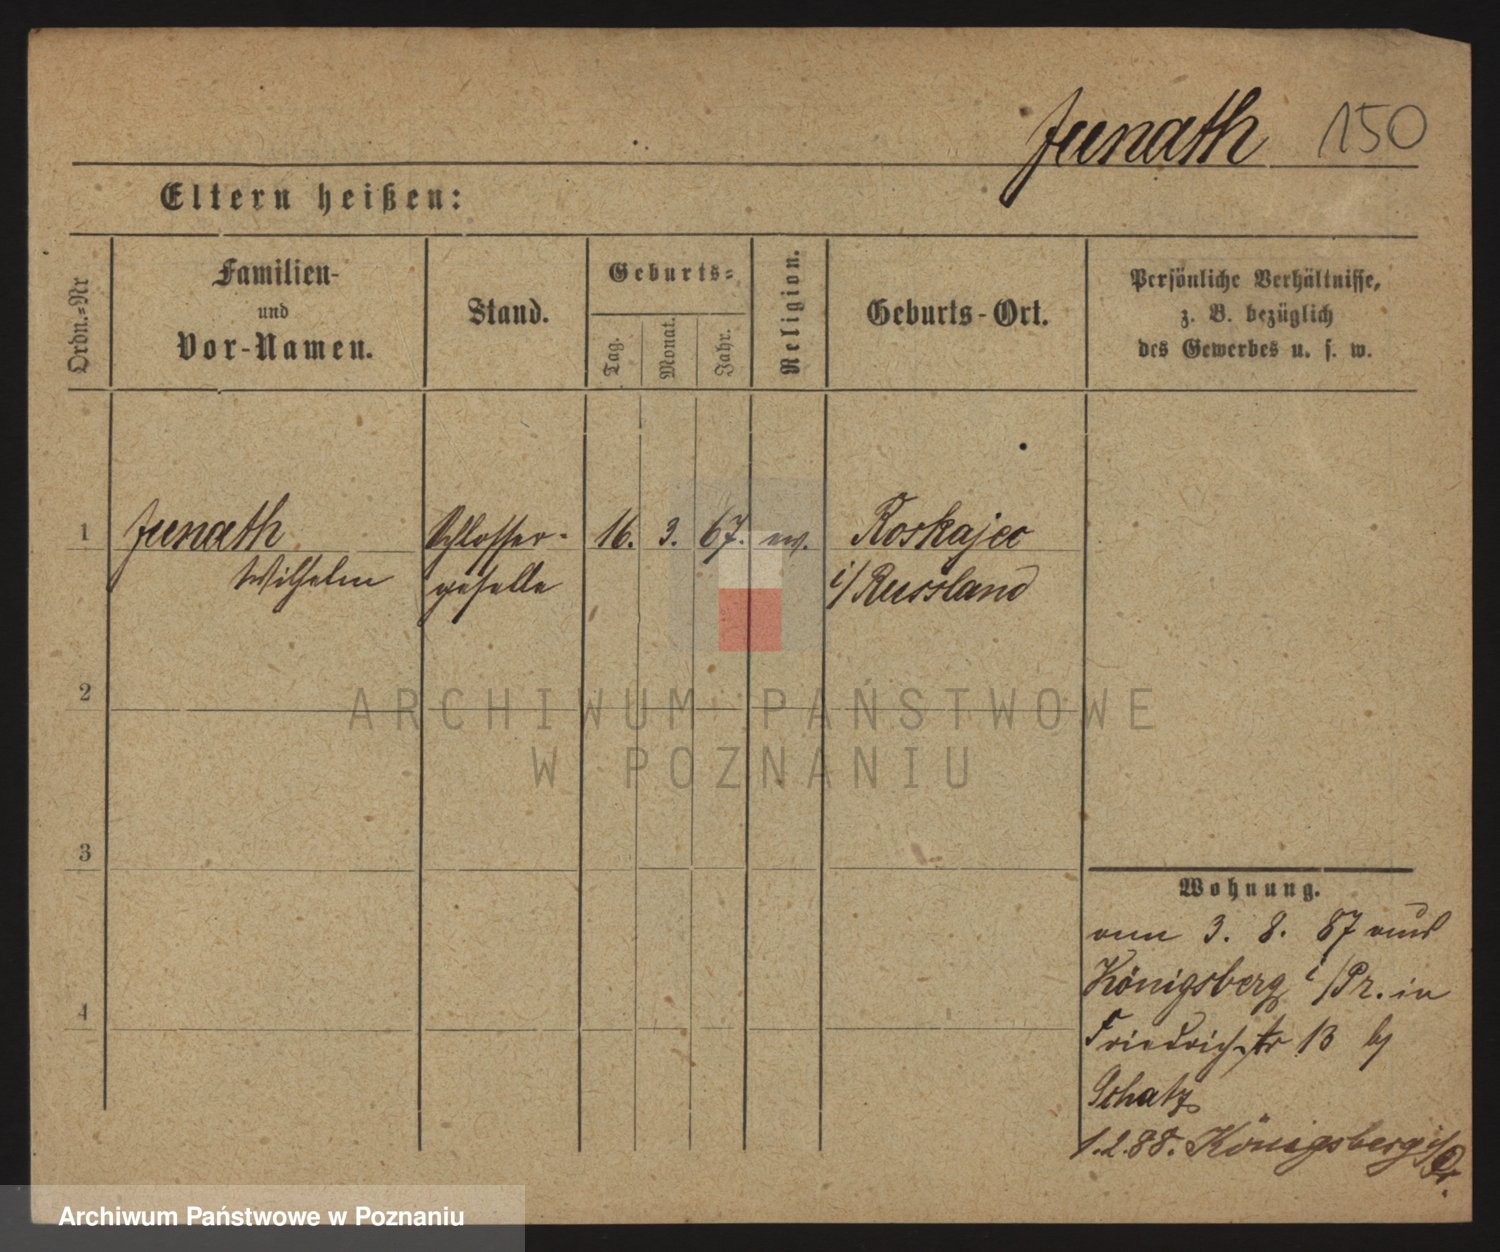 Junath 150
Eltern heißen:
Ordn.=Nr
Familien-
und
Vor-Namen.
Stand.
Geburts=
Tag.
Monat.
Jahr.
Religion.
Geburts-Ort.
Persönliche Verhältnisse,
z. B. bezüglich
des Gewerbes u. s. w.
1 Junath Schlosser- 16. 3. 67. ev. Roskajec
Wilhelm geselle i/Russland
2
3
4
Wohnung.
vom 3. 8. 87 aus
Königsberg i/Pr. in
Friedrichstr 13 by
Schatz
1.2.88. Königsberg i/Pr.
ARCHIWUM PAŃSTWOWE
W POZNANIU
Archiwum Państwowe w Poznaniu